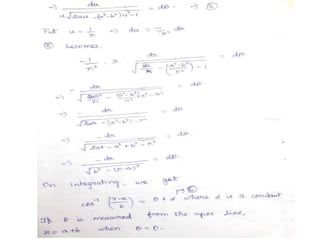 ⇒ du / u√(2au − (a²−b²)u² − 1) = dθ. → ⑤
Put u = 1/r ⇒ du = −1/r² dr
⑤ becomes,
−1/r² · r dr / √(2a/r − (a²−b²)/r² − 1) = dθ
⇒ −dr / = dθ.
⇒ −dr / √(2ar − (a²−b²) − r² = dθ
⇒ −dr / √(2ar − a² + b² − r² = dθ
⇒ −dr / √(b² − (r−a)²) = dθ
On Integrating, we get
cos⁻¹ ((r−a)/b) = θ + α where α is a constant
If θ is measured from the apse line,
r = a+b when θ = 0.